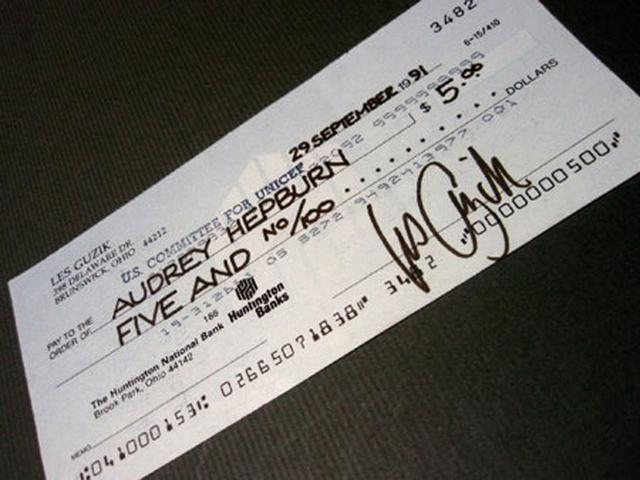 3482
6-15/410
LES GUZIK
288 DELAWARE DR.
BRUNSWICK, OHIO 44212
29 SEPTEMBER 1991
U.S. COMMITTEE FOR UNICEF
PAY TO THE
ORDER OF AUDREY HEPBURN $ 5.00
FIVE AND NO/100 .......... DOLLARS
166
The Huntington National Bank
Brook Park, Ohio 44142
Huntington
Banks
Les Guzik
MEMO
⑆041000153⑆ 02665071838⑈ 3482 ⑈0000000500⑈